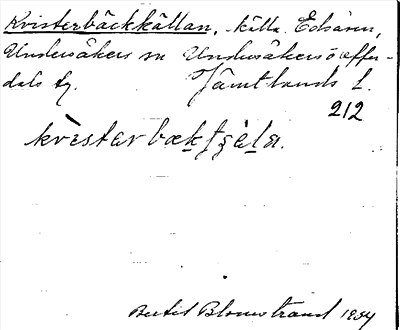 Kvisterbäckkällan, källa. Edsåsen,
Undersåkers sn Undersåkers o Offer-
dals tg. Jämtlands l.
212
krister bækfʂèla.
Bertil Blomstrand 1934